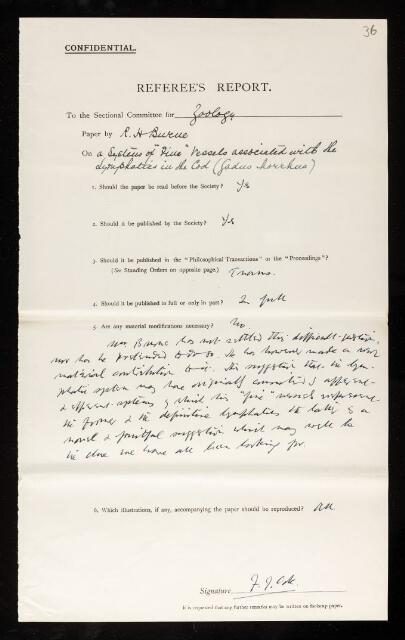 36
CONFIDENTIAL.
REFEREE'S REPORT.
To the Sectional Committee for Zoology
Paper by R. H Burne
On a System of "Fine" Vessels associated with the
Lymphatics in the Cod (Gadus morrhua)
1. Should the paper be read before the Society? Yes
2. Should it be published by the Society? Yes
3. Should it be published in the "Philosophical Transactions" or the "Proceedings"?
(See Standing Orders on opposite page.) Trans.
4. Should it be published in full or only in part? In full
5. Are any material modifications necessary? No.
Mr Burne has not settled this difficult question,
nor has he pretended to do so. He has however made a very
material contribution to it. His suggestion that the lym-
phatic system may have originally consisted of afferent
& efferent systems of which his "fine" vessels represent
the former & the definitive lymphatics the latter is a
novel & fruitful suggestion which may well be
the clue we have all been looking for.
6. Which illustrations, if any, accompanying the paper should be reproduced? All
Signature F. J. Cole.
It is requested that any further remarks may be written on foolscap paper.